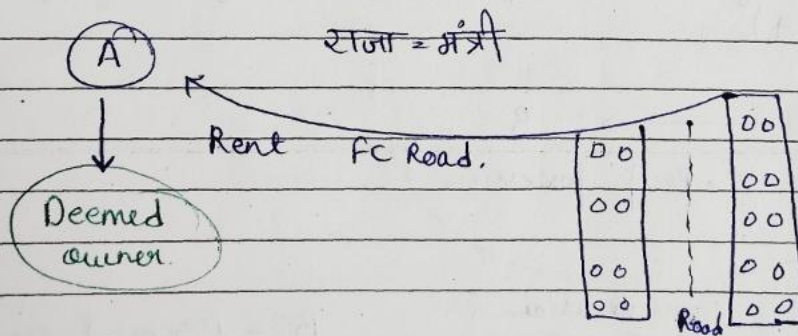 A
राजा = मंत्री
Rent FC Road.
Deemed
owner.
Road